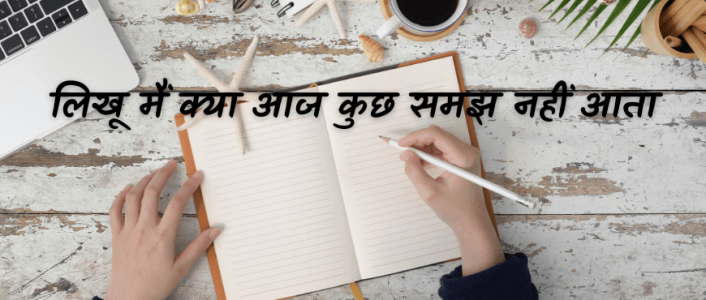 लिखू मैं क्या आज कुछ समझ नहीं आता